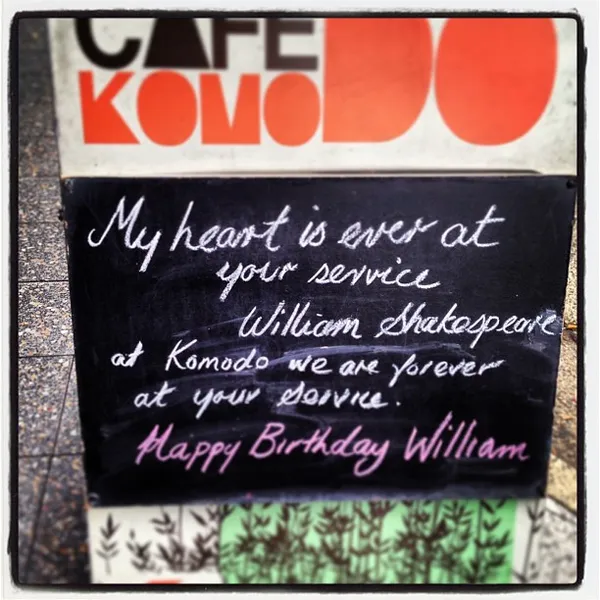 CAFE
KOMODO
My heart is ever at
your service
William Shakespeare
at Komodo we are forever
at your service.
Happy Birthday William